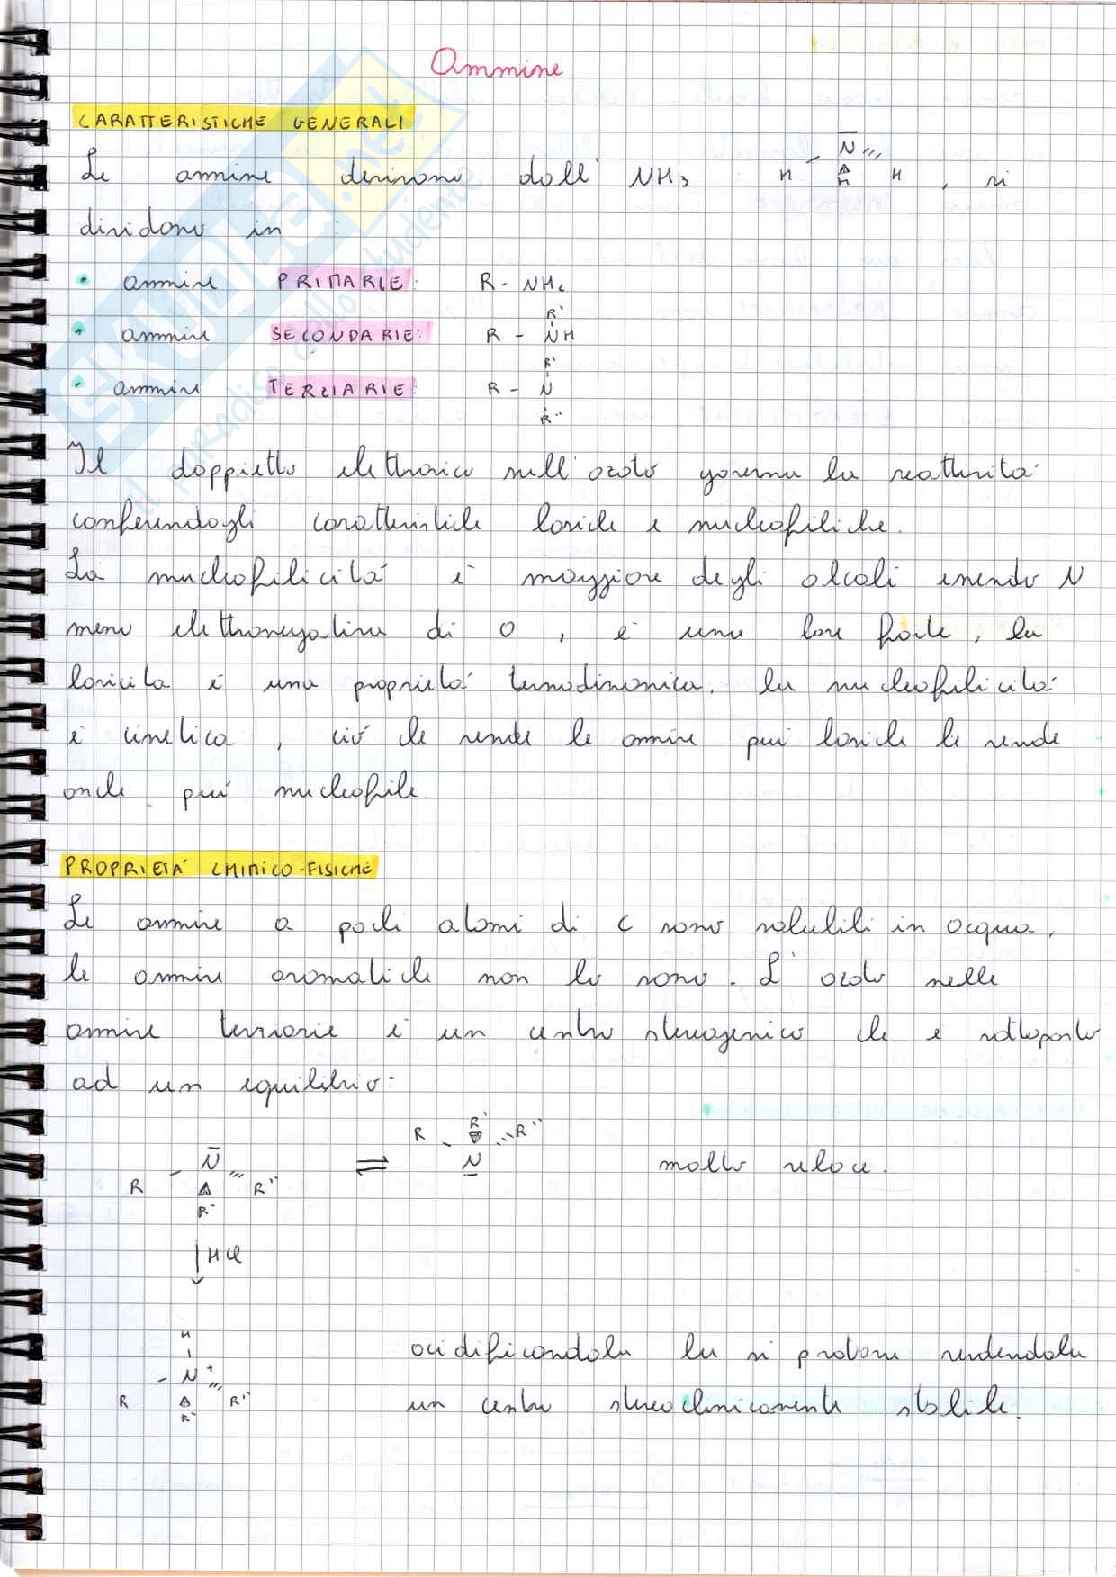 Ammine
CARATTERISTICHE GENERALI
Le ammine derivano dall' NH3 H N H H , si
dividono in
• ammine PRIMARIE: R - NH2
R'
• ammine SECONDARIE: R - NH
R'
• ammine TERZIARIE: R - N
R''
Il doppietto elettronico sull'azoto governa la reattività
conferendogli caratteristiche basiche e nucleofiliche.
La nucleofilicità è maggiore degli alcoli essendo N
meno elettronegativa di O , è una base forte, la
basicità è una proprietà termodinamica, la nucleofilicità
è cinetica , ciò che rende le ammine più basiche le rende
anche più nucleofile
PROPRIETÀ CHIMICO-FISICHE
Le ammine a pochi atomi di C sono solubili in acqua,
le ammine aromatiche non lo sono. L'azoto nelle
ammine terziarie è un centro stereogenico che è sottoposto
ad un equilibrio:
R N R' R'' ⇌ R R' R'' N molto veloce.
↓ HCl
H
R N+ R' R''
acidificandola la si protona rendendola
un centro stereochimicamente stabile.